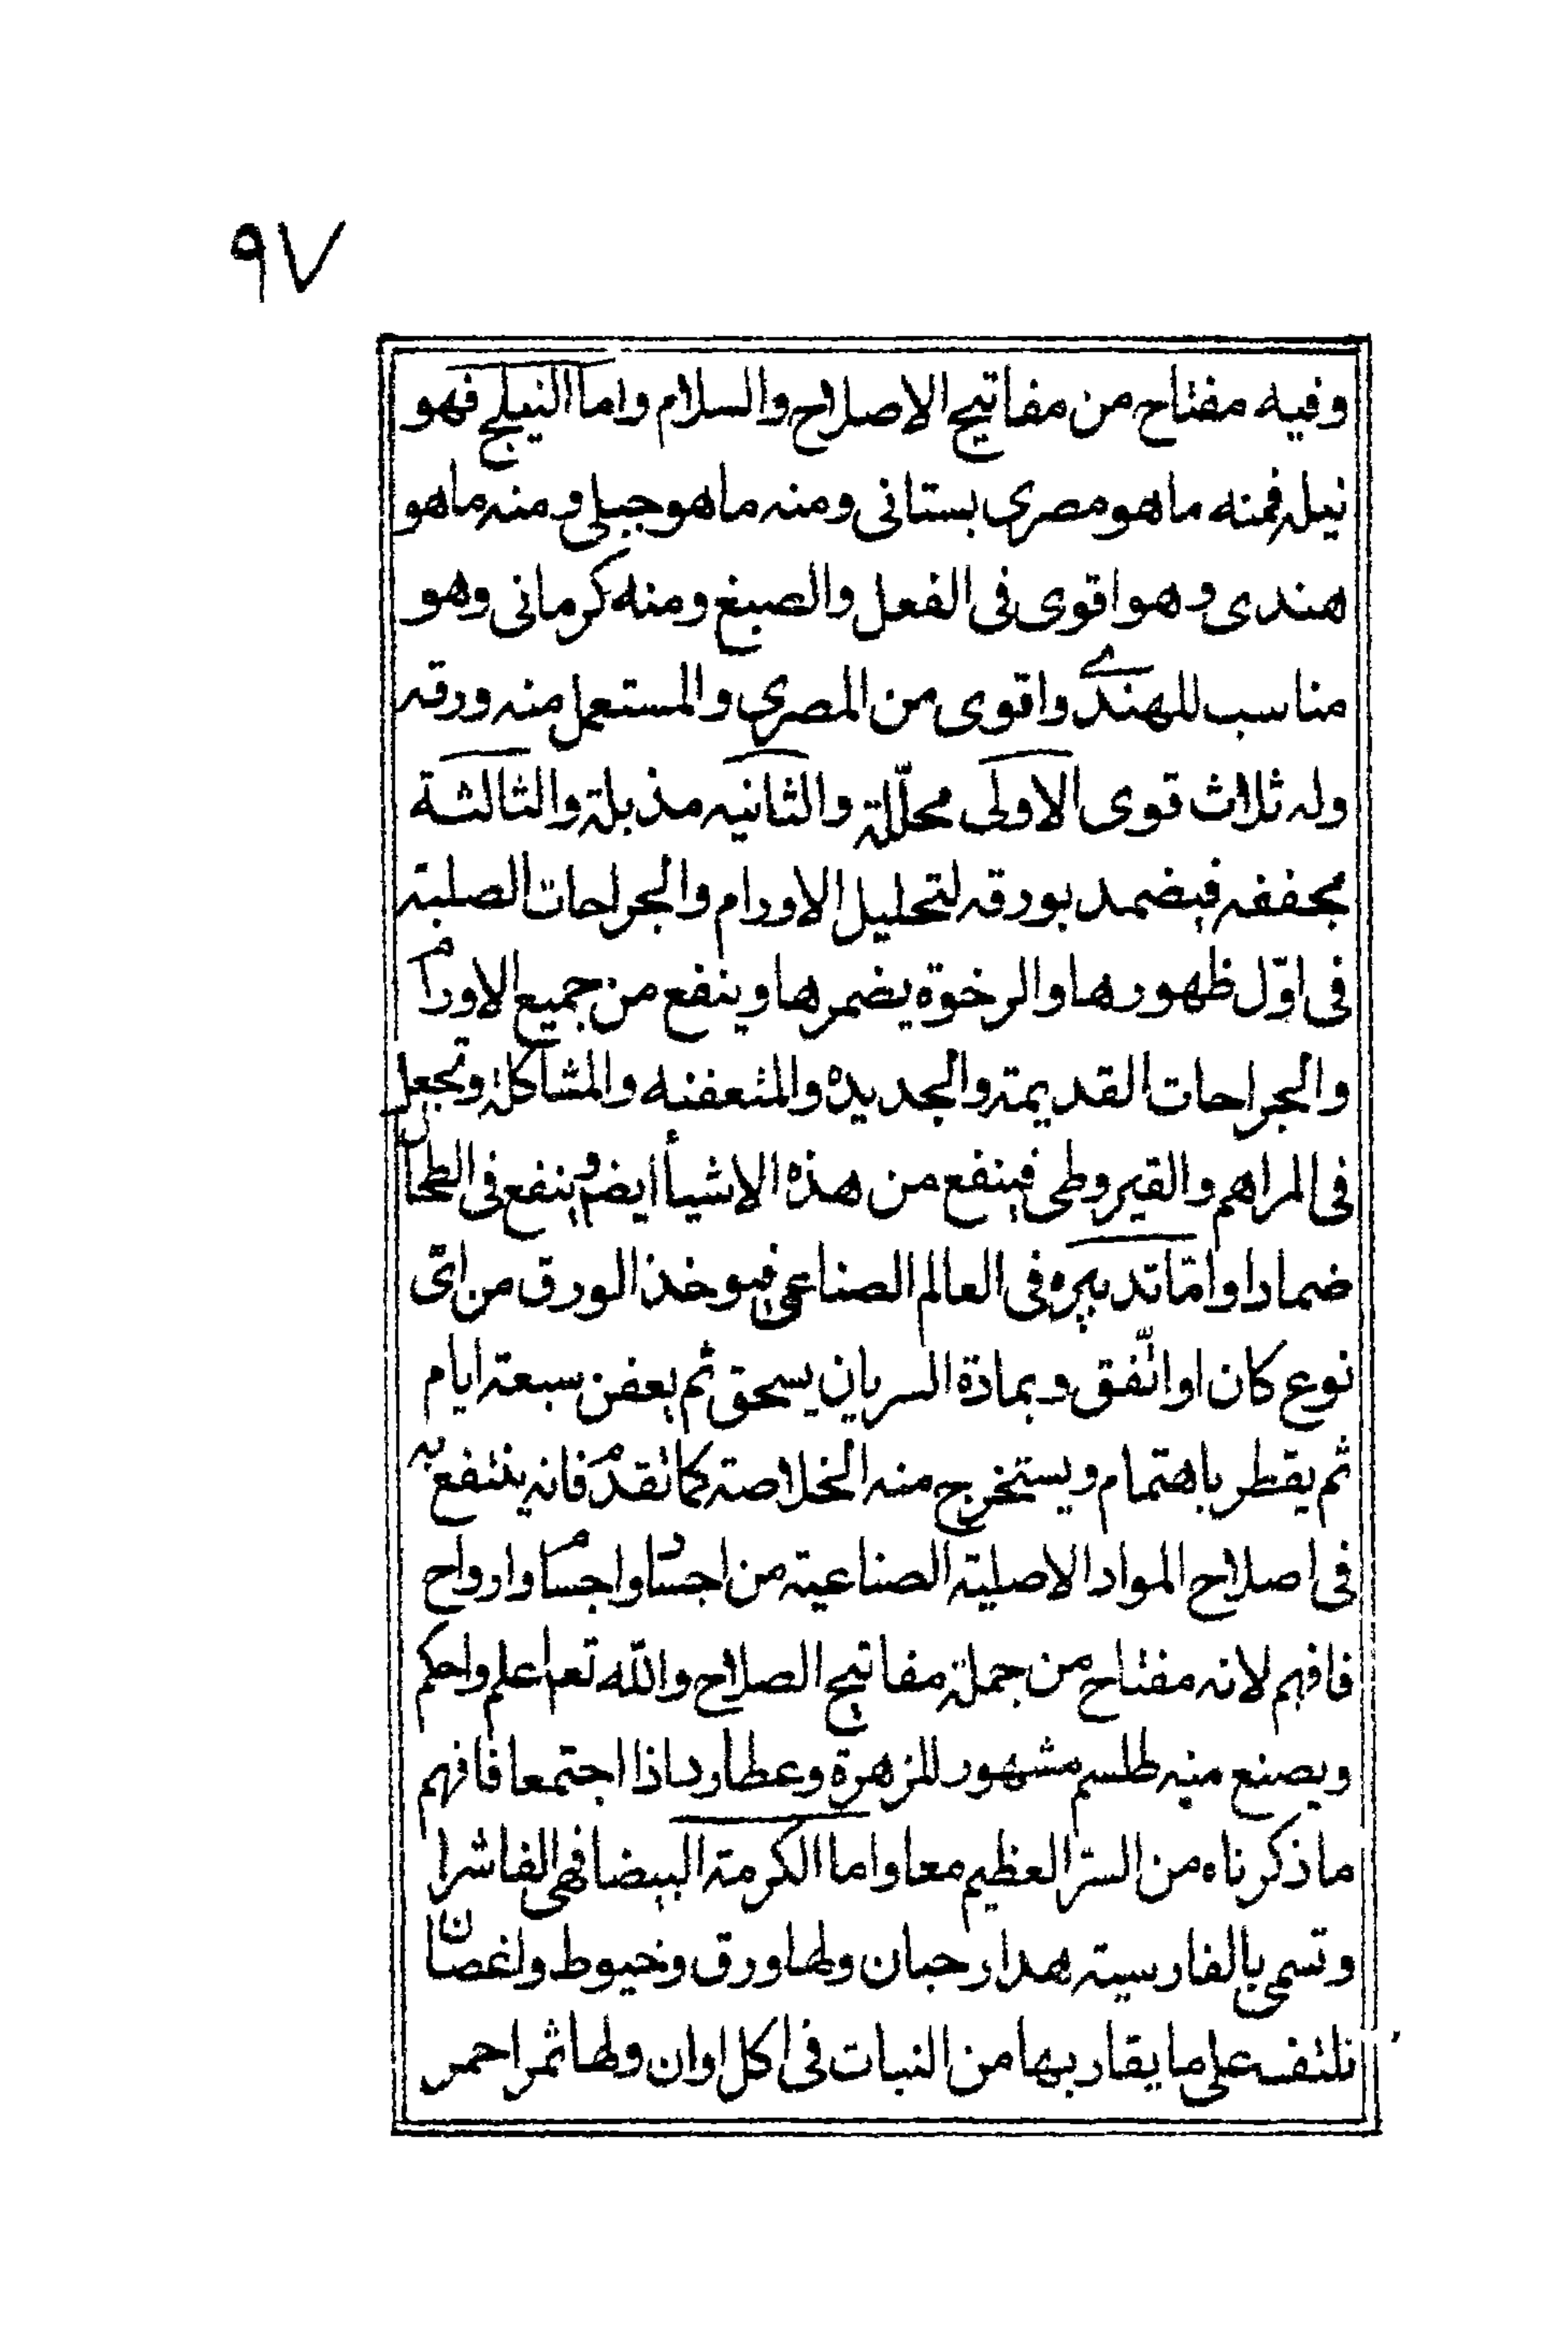 ٩٧
وفيه مفتاح من مفاتيح الاصلاح والسلام واما النيلج فهو
نيله فمنه ما هو مصرى بستانى ومنه ما هو جبلى ومنه ما هو
هندى وهو اقوى فى الفعل والصبغ ومنه كرمانى وهو
مناسب للهندى واقوى من المصرى والمستعمل منه ورقه
وله ثلاث قوى الاولى محلّلة والثانيه مذبلة والثالثة
مجففه فيضمد بورقه لتحليل الاورام والجراحات الصلبة
فى اوّل ظهورها والرخوة يضمرها وينفع من جميع الاورام
والجراحات القديمة والجديده والمتعفنه والمشاكلة وتجعل
فى المراهم والقيروطى فينفع من هذه الاشيأ ايضو ينفع فى الطحال
ضمادا وامّا تدبيره فى العالم الصناعى فيوخذ الورق من اىّ
نوع كان او اتّفق وبمادة السريان يسحق ثم يعفن سبعة ايام
ثم يقطر باهتمام ويستخرج منه الخلاصة كما تقدم فانه ينتفع به
فى اصلاح المواد الاصلية الصناعية من اجساد واجسام وارواح
فافهم لانه مفتاح من جملة مفاتيح الصلاح والله تعم اعلم واحكم
ويصنع منه طلسم مشهور للزهرة وعطارد اذا اجتمعا فافهم
ما ذكرناه من السرّ العظيم معا واما الكرمة البيضا فهى الفاشرا
وتسمى بالفارسية هدار حبان ولها ورق وخيوط واغصان
تلتف على ما يقاربها من النبات فى اكل اوان ولها ثمر احمر